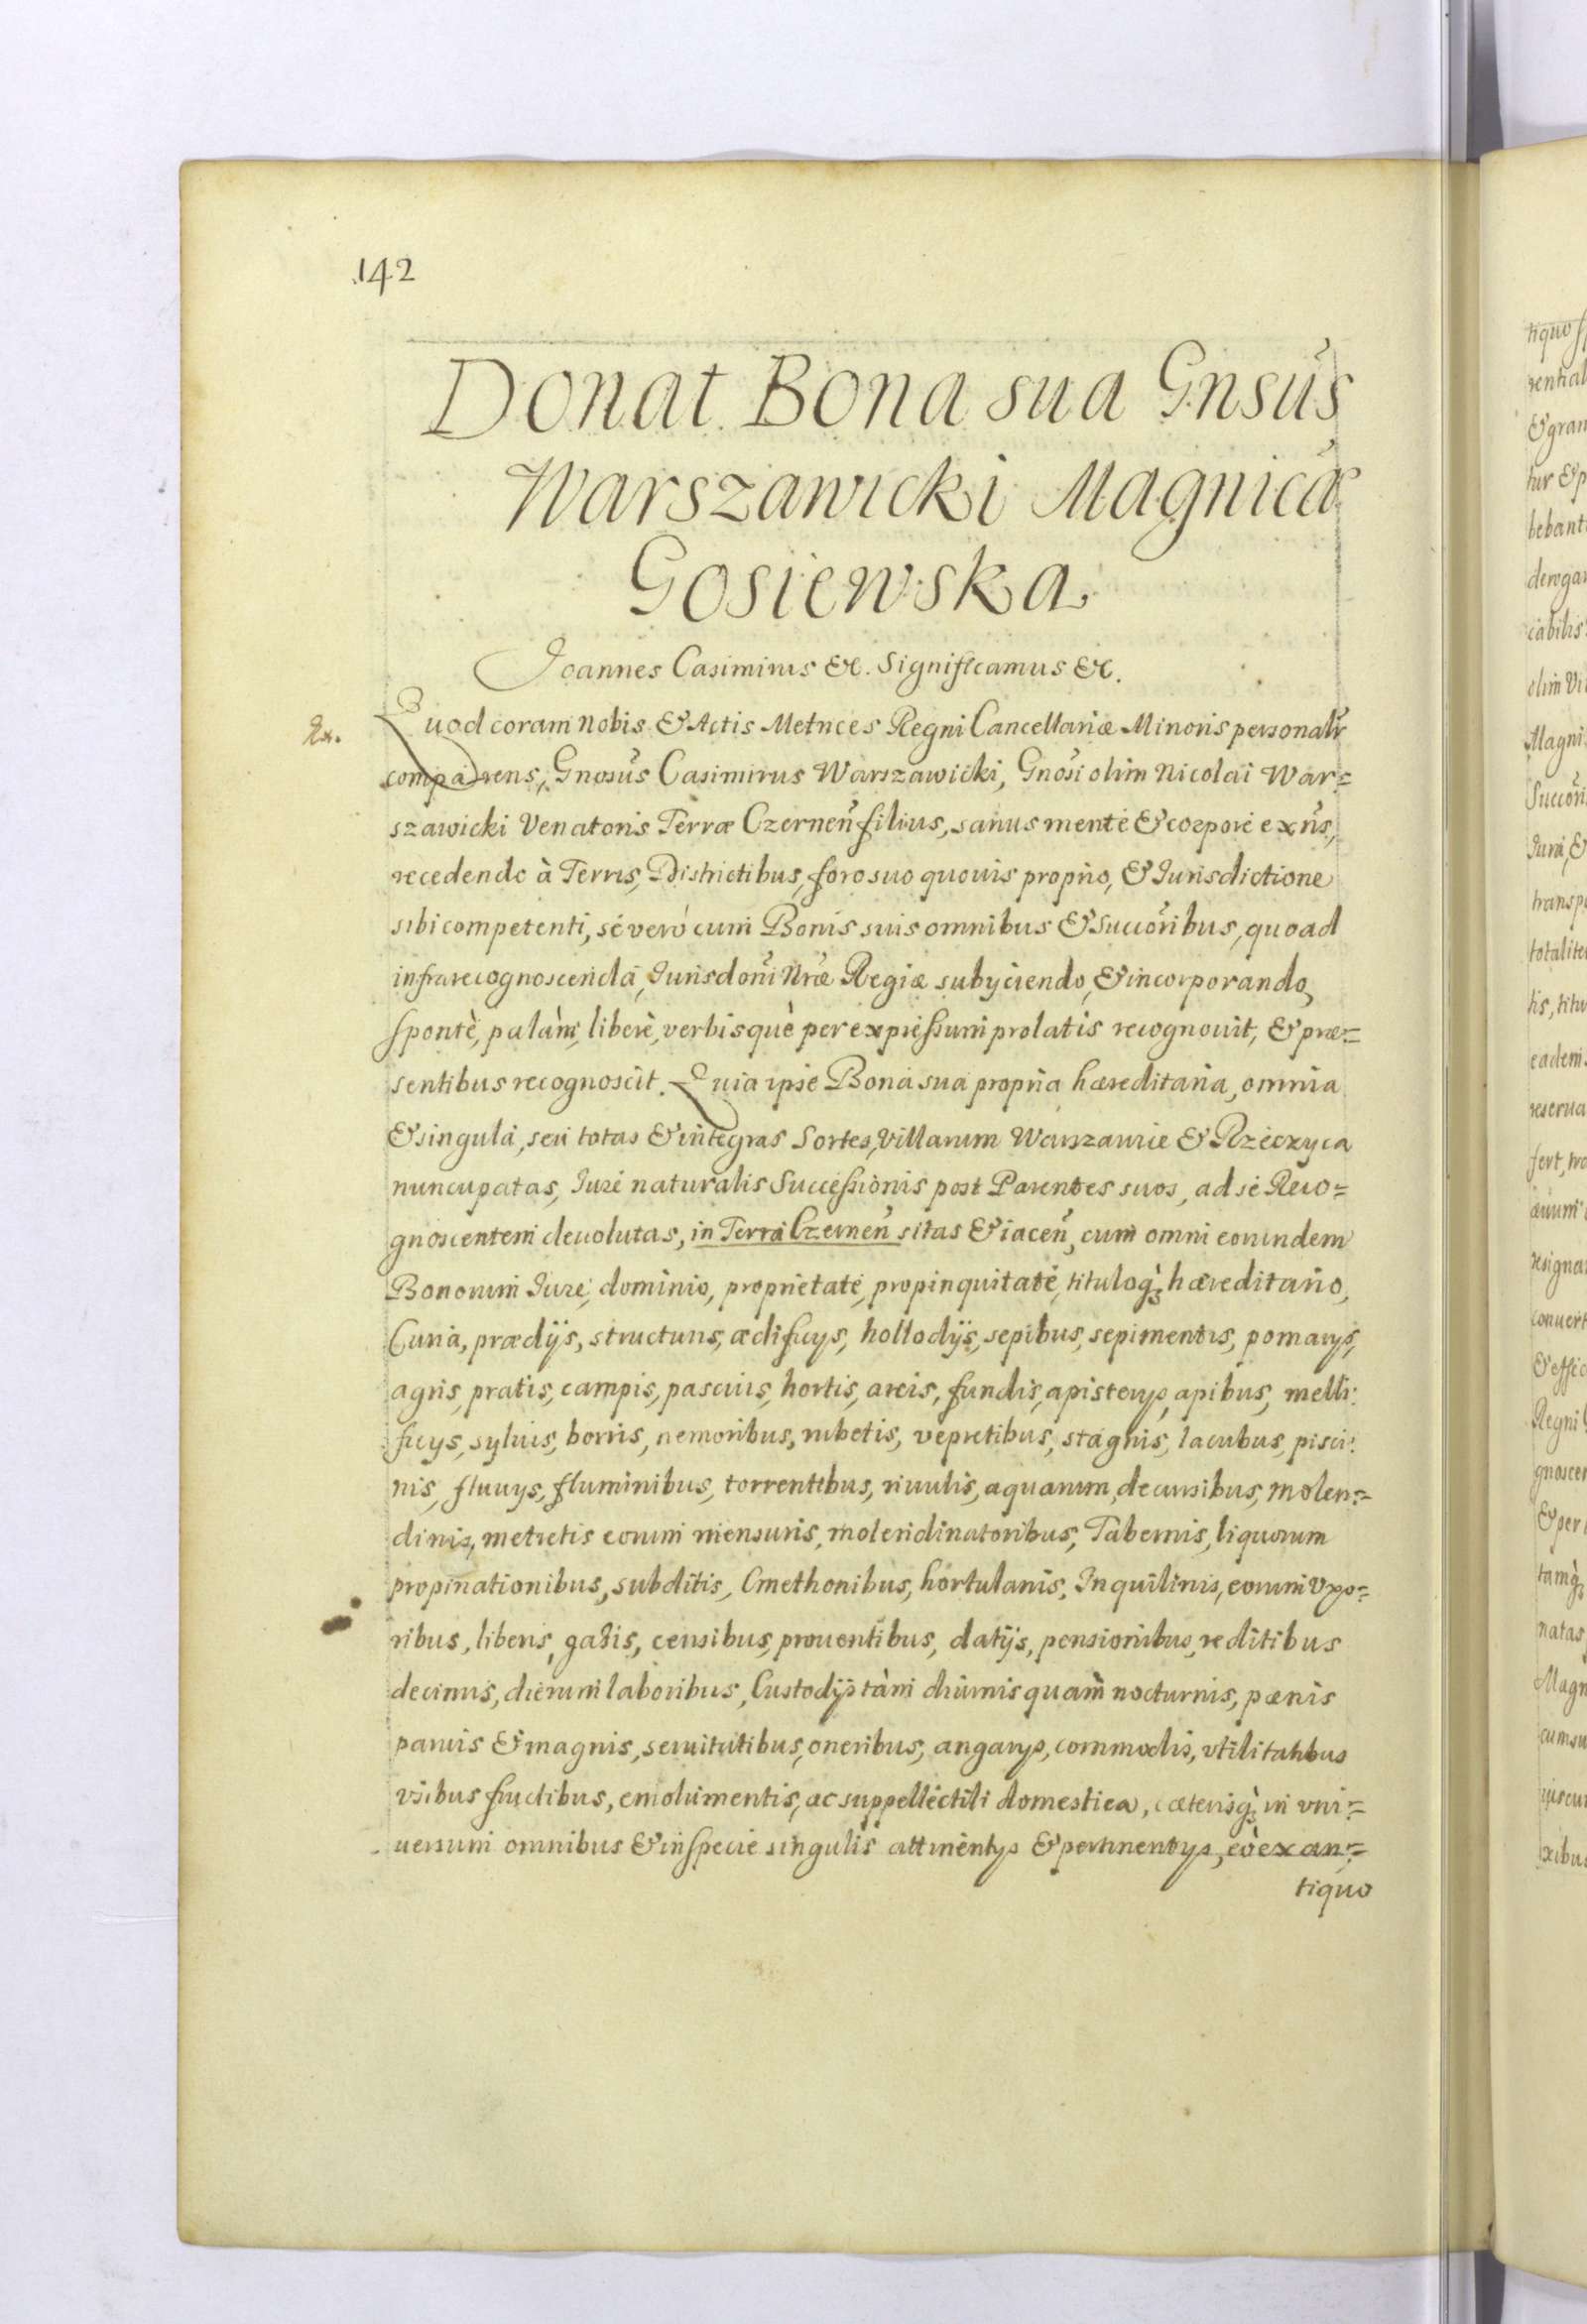 142
Donat Bona sua Gnsus
Warszawicki Magnicæ
Gosiewska
Joannes Casimirus &c. Significamus &c.
Rx.
Quod coram nobis & Actis Metrices Regni Cancellariæ Minoris personalr
comparens, Gnosus Casimirus Warszawicki, Gnosi olim Nicolai War=
szawicki Venatoris Terræ Czernen filius, sanus mente & corpore exns,
recedendo à Terris, Districtibus, foro suo quovis proprio, & Jurisdictione
sibi competenti, se verò cum Bonis suis omnibus & Succoribus, quoad
infrarecognoscenda, Jurisdoni Nræ Regiæ subyciendo, & incorporando,
sponte, palàm, liberè, verbisquè per expressum prolatis recognouit, & præ=
sentibus recognoscit. Quia ipse Bona sua propria hæreditaria, omnia
& singula, seu totas & integras Sortes, Villarum Warszawie & Rzeczyca
nuncupatas, Jure naturalis Successionis post Parentes suos, ad se Reco=
gnoscentem deuolutas, in Terra Czernen sitas & iacen, cum omni eorundem
Bonorum Jure, dominio, proprietate, propinquitate, tituloq; hæreditario,
Curia, prædijs, structuris, ædificys, hollodijs, sepibus, sepimentis, pomarys,
agris, pratis, campis, pascuis, hortis, areis, fundis, apisterys, apibus, melli:
ficys, syluis, borris, nemoribus, rubetis, vepretibus, stagnis, lacubus, pisci:
nis, fluuys, fluminibus, torrentibus, riuulis, aquarum, decursibus, molen=
dinis, metretis eorum mensuris, molendinatoribus, Tabernis, liquorum
propinationibus, subditis, Cmethonibus, hortulanis, Inquilinis, eorum Vxo=
ribus, liberis, gazis, censibus, prouentibus, datijs, pensionibus, reditibus
decimis, dierum laboribus, Custodijs tàm diurnis quàm nocturnis, pænis
paruis & magnis, seruitutibus, oneribus, angarys, commodis, vtilitatibus
vsibus fructibus, emolumentis, ac suppellectili domestica, cæterisq; in vni=
uersum omnibus & in specie singulis attinentys & pertinentys, eò ex an=
tiquo